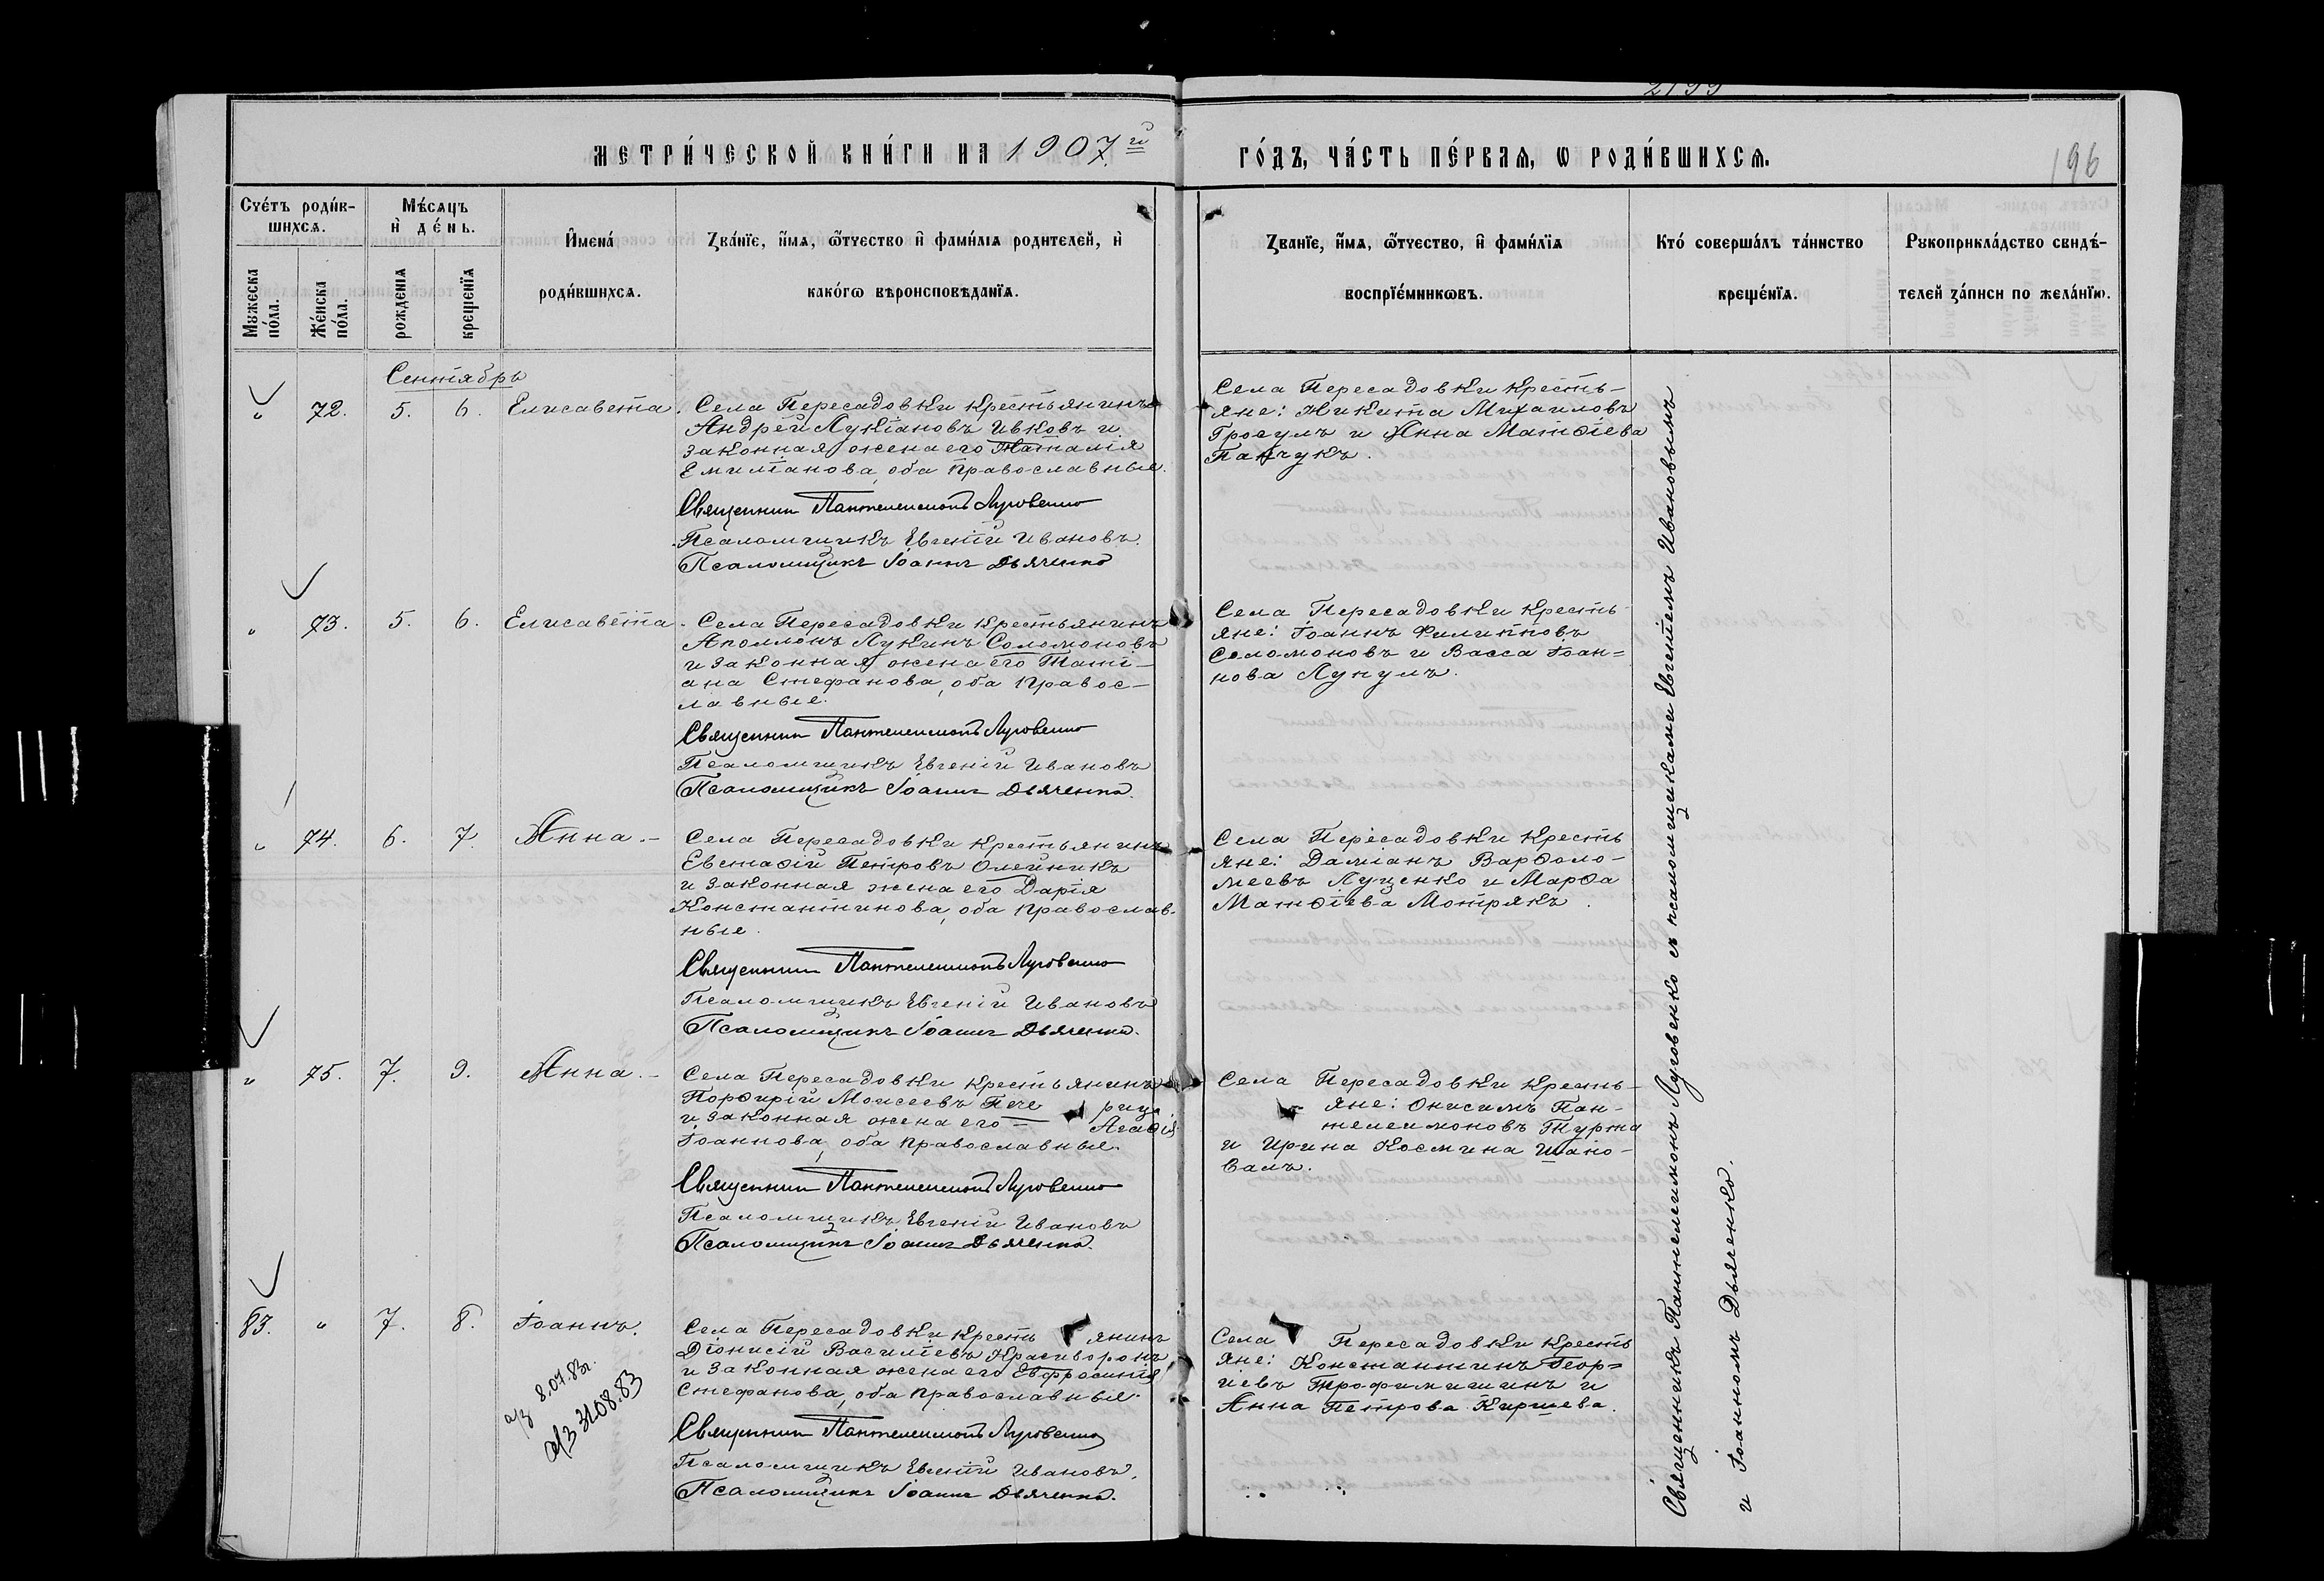 2199
МЕТРИ́ЧЕСКОЙ КНИ́ГИ НА 1907й
ГО́ДЪ, ЧА́СТЬ ПЕ́РВАѦ, Ѡ РОДИ́ВШИХСѦ.
196
Сче́тъ роди́в-
шихсѧ.
Мꙋжеска
по́ла.
Же́нска
по́ла.
Мѣ́сѧцъ
и҆ де́нь.
рожденїѧ
крещенїѧ
И҆мена́
роди́вшихсѧ.
Зва́нїе, и҆́мѧ, ѻ҆́тчество и҆ фами́лїѧ родителей, и҆
како́гѡ вѣроисповѣданїѧ.
Зва́нїе, и҆́мѧ, ѻ҆́тчество, и҆ фами́лїѧ
воспрїе́мникѡвъ.
Кто́ соверша́лъ та́инство
креще́нїѧ.
Рꙋкоприкла́дство свидѣ́-
телей за́писи по жела́нїю.
Сентябрь
" 72. 5. 6. Елисавета.
Села Пересадовки крестьянинъ
Андрей Лукіановъ Ивковъ и
законная жена его Наталія
Емиліанова, оба православные.
Священникъ Пантелеимонъ Луговенко
Псаломщикъ Евгеній Ивановъ.
Псаломщикъ Іоаннъ Дьяченко
Села Пересадовки кресть-
яне: Никита Михаиловъ
Гросулъ и Анна Матѳіева
Панчукъ.
" 73. 5. 6. Елисавета.
Села Пересадовки крестьянинъ
Аполлонъ Лукинъ Соломоновъ
и законная жена его Таті-
ана Стефанова, оба правос-
лавные.
Священникъ Пантелеимонъ Луговенко
Псаломщикъ Евгеній Ивановъ
Псаломщикъ Іоаннъ Дьяченко.
Села Пересадовки кресть
яне: Іоаннъ Филипповъ
Соломоновъ и Васса Іоан=
нова Лупулъ.
" 74. 6. 7. Анна.-
Села Пересадовки крестьянинъ
Евстаѳій Петровъ Олейникъ
и законная жена его Дарія
Константинова, оба православ-
ные.
Священникъ Пантелеимонъ Луговенко
Псаломщикъ Евгеній Ивановъ
Псаломщикъ Іоаннъ Дьяченко.
Села Пересадовки кресть
яне: Даміанъ Варѳоло-
меевъ Луценко и Марѳа
Матѳіева Мотрякъ.
" 75. 7. 9. Анна.-
Села Пересадовки крестьянинъ
Порфирій Моисеевъ Пече рица
и законная жена его - Агаѳія
Іоаннова, оба православные.
Священникъ Пантелеимонъ Луговенко
Псаломщикъ Евгеній Ивановъ
Псаломщикъ Іоаннъ Дьяченко.
Села Пересадовки кресть-
яне: Онисимъ Пан-
телеимоновъ Турта
и Ирина Космина Шапо-
валъ.
83. " 7. 8. Іоаннъ.
а/з 8.07.83г.
а/з 31.08.83
Села Пересадовки кресть янинъ
Діонисій Василіевъ Красиворонъ
и законная жена его Евфросинія
Стефанова, оба православные.
Священникъ Пантелеимонъ Луговенко
Псаломщикъ Евгеній Ивановъ,
Псаломщикъ Іоаннъ Дьяченко.
Села Пересадовки кресть
яне: Константинъ Геор=
гіевъ Трофимишинъ и
Анна Петрова Киршева.
Священникъ Пантелеимонъ Луговенко съ псаломщиками Евгеніемъ Ивановымъ
и Іоанномъ Дьяченко.